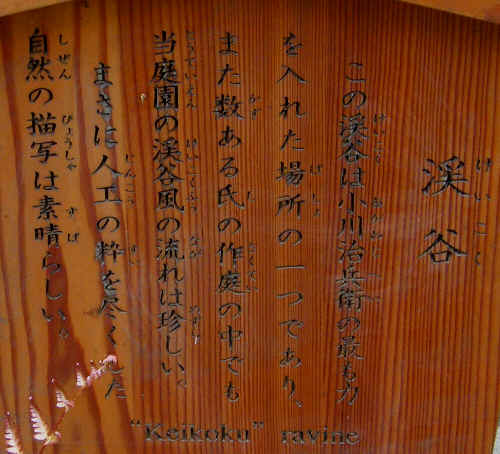 渓谷
この渓谷は小川治兵衛の最も力
を入れた場所の一つであり、
また数ある氏の作庭の中でも
当庭園の渓谷風の流れは珍しい。
まさに人工の粋を尽くした
自然の描写は素晴らしい。
"Keikoku" ravine